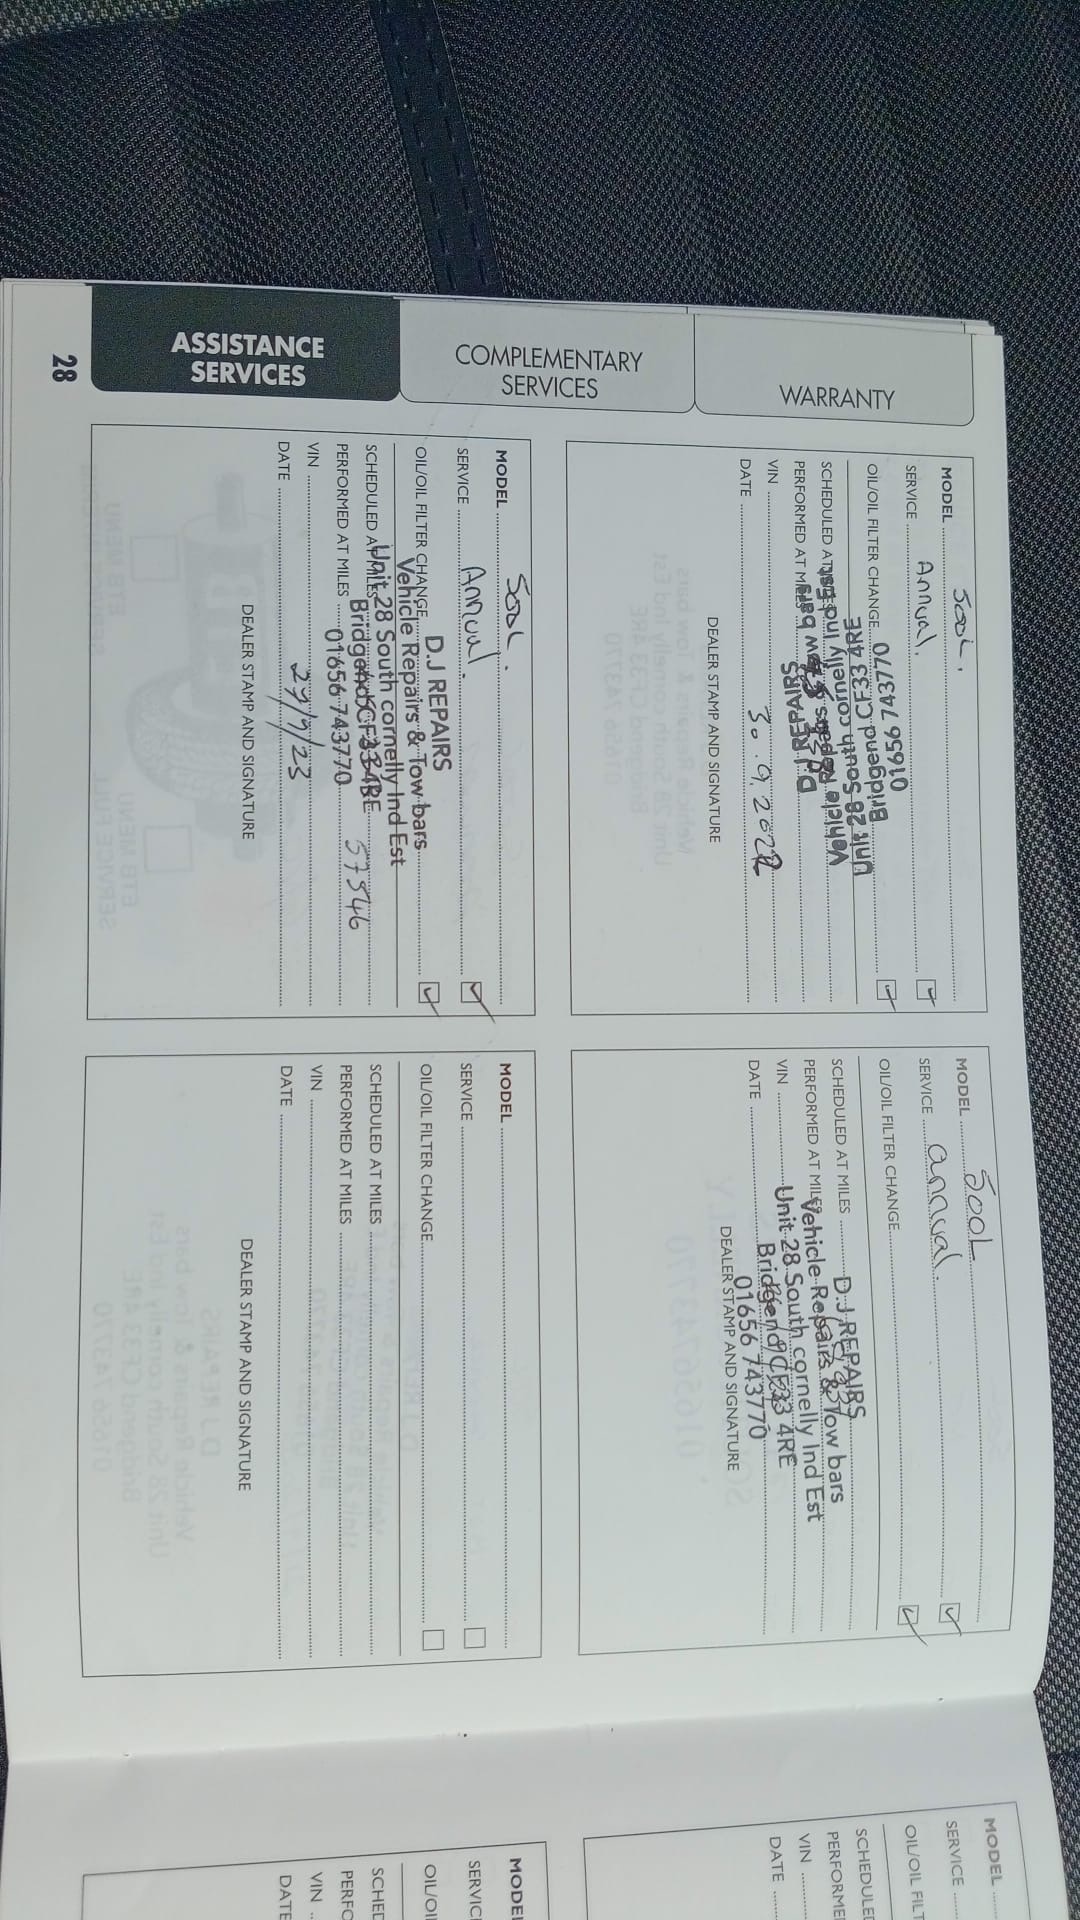 WARRANTY
COMPLEMENTARY
SERVICES
ASSISTANCE
SERVICES
28
MODEL 500L.
SERVICE Annual.
OIL/OIL FILTER CHANGE
01656 743770
Bridgend CF33 4RE
Unit 28 South cornelly Ind Est
SCHEDULED AT MILES
Vehicle Repairs & Tow bars
PERFORMED AT MILES
D.J REPAIRS
VIN
DATE 30.9.2022
DEALER STAMP AND SIGNATURE
MODEL 500L
SERVICE annual.
OIL/OIL FILTER CHANGE
SCHEDULED AT MILES
D.J REPAIRS
PERFORMED AT MILES
Vehicle Repairs & Tow bars
VIN
Unit 28 South cornelly Ind Est
DATE
Bridgend CF33 4RE
01656 743770
DEALER STAMP AND SIGNATURE
MODEL 500L.
SERVICE Annual.
OIL/OIL FILTER CHANGE
D.J REPAIRS
Vehicle Repairs & Tow bars
SCHEDULED AT MILES
Unit 28 South cornelly Ind Est
PERFORMED AT MILES 57546
Bridgend CF33 4RE
01656 743770
VIN
DATE 29/9/23
DEALER STAMP AND SIGNATURE
MODEL
SERVICE
OIL/OIL FILTER CHANGE
SCHEDULED AT MILES
PERFORMED AT MILES
VIN
DATE
DEALER STAMP AND SIGNATURE
MODEL
SERVICE
OIL/OIL FILT
SCHEDULED
PERFORME
VIN
DATE
MODEL
SERVIC
OIL/OI
SCHED
PERFO
VIN
DATE